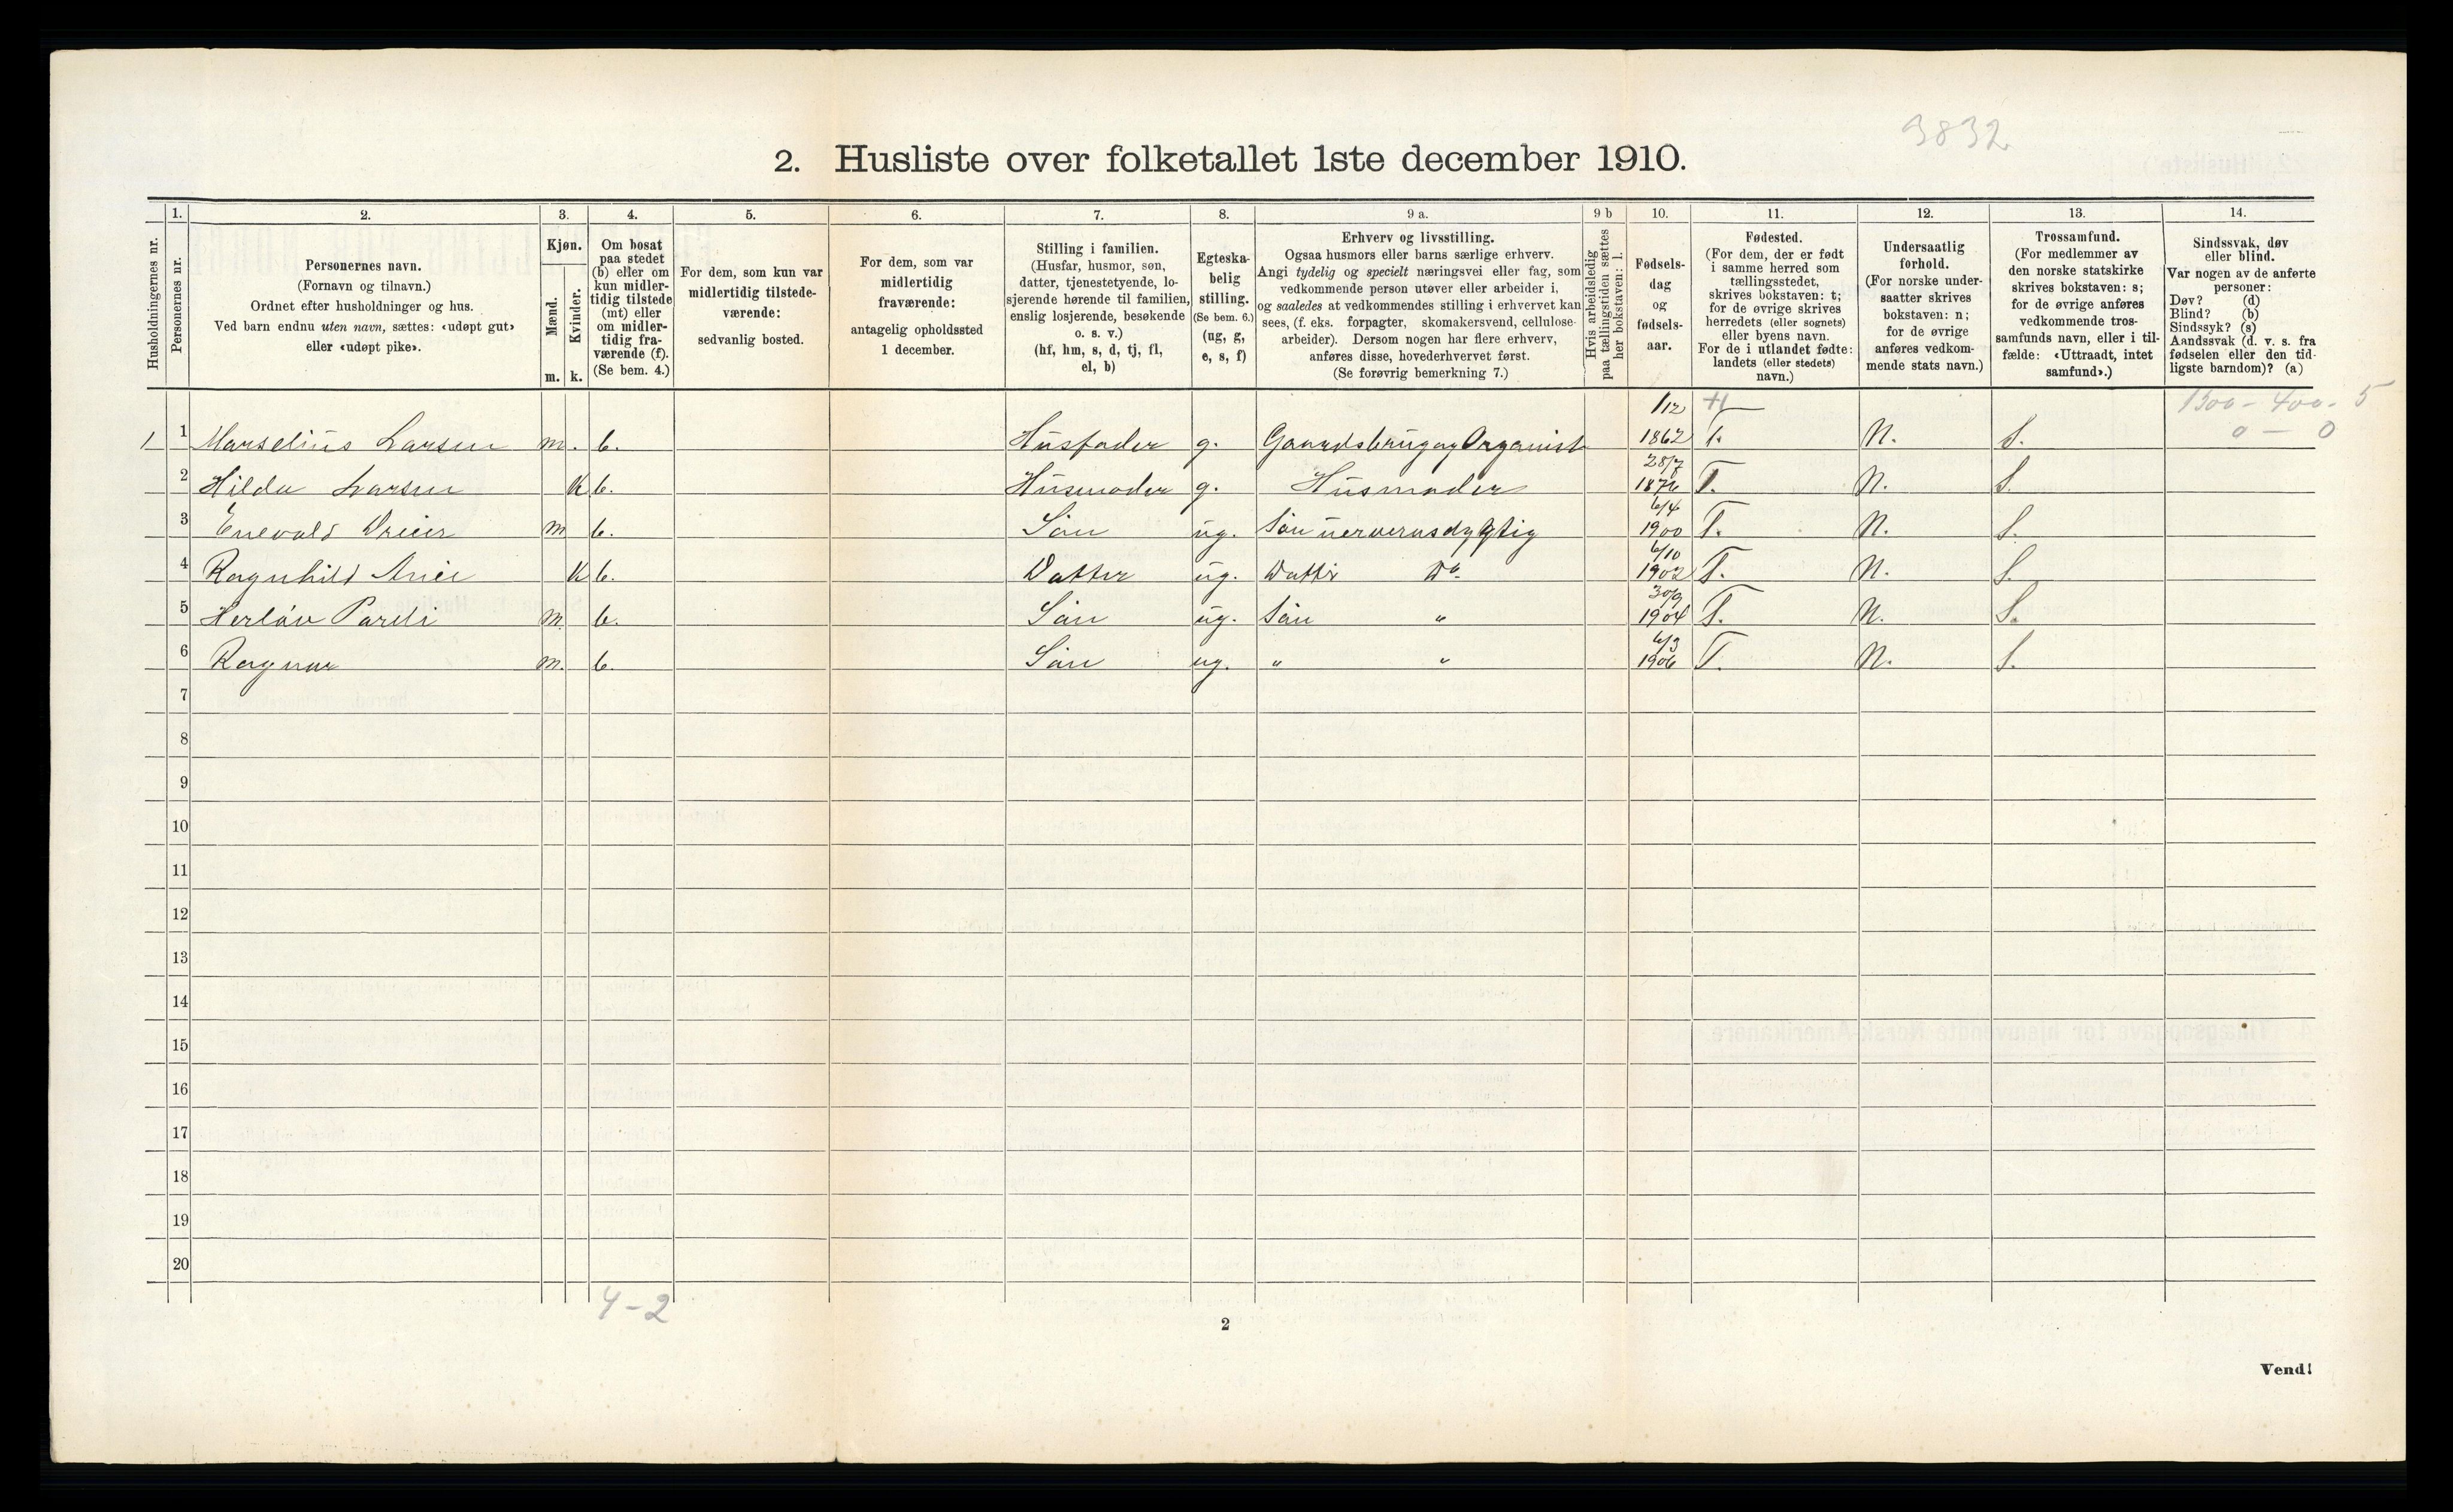 3832
2. Husliste over folketallet 1ste december 1910.
Husholdningernes nr.
1. Personernes nr.
2. Personernes navn. (Fornavn og tilnavn.) Ordnet efter husholdninger og hus. Ved barn endnu uten navn, sættes: «udøpt gut» eller «udøpt pike».
3. Kjøn. Mænd. m. Kvinder. k.
4. Om bosat paa stedet (b) eller om kun midler-tidig tilstede (mt) eller om midler-tidig fra-værende (f). (Se bem. 4.)
5. For dem, som kun var midlertidig tilstede-værende: sedvanlig bosted.
6. For dem, som var midlertidig fraværende: antagelig opholdssted 1 december.
7. Stilling i familien. (Husfar, husmor, søn, datter, tjenestetyende, lo-sjerende hørende til familien, enslig losjerende, besøkende o. s. v.) (hf, hm, s, d, tj, fl, el, b)
8. Egteska-belig stilling. (Se bem. 6.) (ug, g, e, s, f)
9 a. Erhverv og livsstilling. Ogsaa husmors eller barns særlige erhverv. Angi tydelig og specielt næringsvei eller fag, som vedkommende person utøver eller arbeider i, og saaledes at vedkommendes stilling i erhvervet kan sees, (f. eks. forpagter, skomakersvend, cellulose-arbeider). Dersom nogen har flere erhverv, anføres disse, hovederhvervet først. (Se forøvrig bemerkning 7.)
9 b Hvis arbeidsledig paa tællingstiden sættes her bokstaven: l.
10. Fødsels-dag og fødsels-aar.
11. Fødested. (For dem, der er født i samme herred som tællingsstedet, skrives bokstaven: t; for de øvrige skrives herredets (eller sognets) eller byens navn. For de i utlandet fødte: landets (eller stedets) navn.)
12. Undersaatlig forhold. (For norske under-saatter skrives bokstaven: n; for de øvrige anføres vedkom-mende stats navn.)
13. Trossamfund. (For medlemmer av den norske statskirke skrives bokstaven: s; for de øvrige anføres vedkommende tros-samfunds navn, eller i til-fælde: «Uttraadt, intet samfund».)
14. Sindssvak, døv eller blind. Var nogen av de anførte personer: Døv? (d) Blind? (b) Sindssyk? (s) Aandssvak (d. v. s. fra fødselen eller den tid-ligste barndom)? (a)
1500 - 400 - 5
0 - 0
1 1 Marselius Larsen m. b. Husfader g. Gaardsbrug og Organist 1/12 1862 t. N. S.
2 Hilda Larsen K b. Husmoder g. Husmoder 28/7 1874 T. N. S.
3 Enevald m b. Sön ug. Sön 6/4 1900 T. N. S.
4 Ragnhild K b. Datter ug. Datter Do. 6/10 1902 T. N. S.
5 Herlöv Pareli m. b. Sön ug. Sön " 30/9 1904 T. N. S.
6 Ragnar m. b. Sön ug. " " 6/3 1906 T. N. S.
7
8
9
10
11
12
13
14
15
16
17
18
19
20
4 - 2
2
Vend!